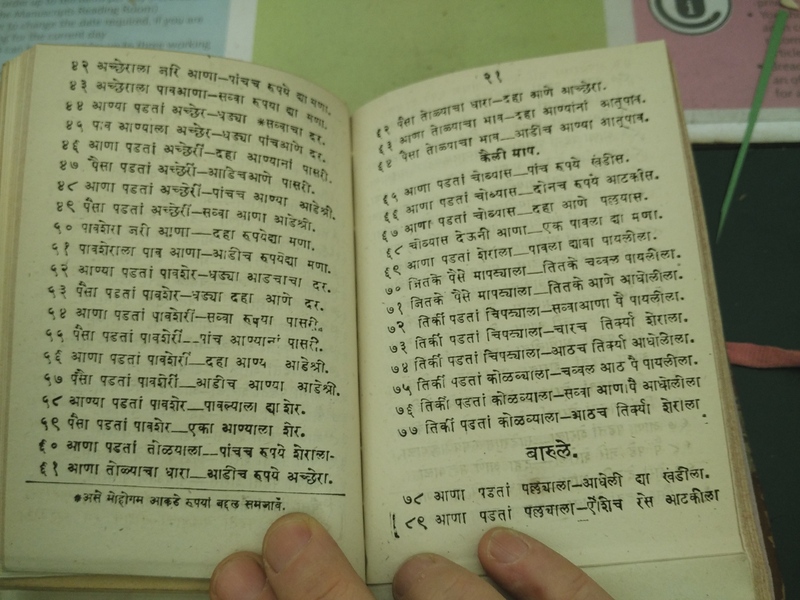 ४२ अच्छेराला जरि आणा—पांचच रुपये द्या मणा.
४३ अच्छेराला पावआणा—सव्वा रुपया द्या मणा.
४४ आण्या पडतां अच्छेर—धड्या *सव्वाचा दर.
४५ पाव आण्याला अच्छेर—धड्या पांचआणे दर.
४६ आणा पडतां अच्छेरीं—दहा आण्यानां पासरी.
४७ पैसा पडतां अच्छेरीं—आडिचआणे पासरी.
४८ आणा पडतां अच्छेरीं—पांचच आण्या आडेश्री.
४९ पैसा पडतां अच्छेरीं—सव्वा आणा आडेश्री.
५० पावशेरा जरी आणा—दहा रुपयेद्या मणा.
५१ पावशेराला पाव आणा—आडीच रुपयेद्या मणा.
५२ आण्या पडतां पावशेर—धड्या आडचाचा दर.
५३ पैसा पडतां पावशेर—धड्या दहा आणे दर.
५४ आणा पडतां पावशेरीं—सव्वा रुपया पासरी.
५५ पैसा पडतां पावशेरीं—पांच आण्यानां पासरी.
५६ आणा पडतां पावशेरीं—दहा आण्या आडेश्री.
५७ पैसा पडतां पावशेरीं—आडीच आण्या आडेश्री.
५८ आण्या पडतां पावशेर—पावल्याला द्या शेर.
५९ पैसा पडतां पावशेर—एका आण्याला शेर.
६० आणा पडतां तोळयाला—पांचच रुपये शेराला-
६१ आणा तोळ्याचा धारा—आडीच रुपये अच्छेरा.
*असे मोहोगम आकडे रुपयां बद्दल समजावें.
२१
६२ पैसा तोळ्याचा धारा—दहा आणे आच्छेरा.
६३ आणा तोळ्याचा भाव—दहा आण्यांनां आतपाव.
६४ पैसा तोळ्याचा भाव—आडीच आण्या आतपाव.
कैली माप.
६५ आणा पडतां चोथ्यास—पांच रुपये खंडीस.
६६ आणा पडतां चोथ्यास—दोनच रुपये आटकीस.
६७ आणा पडतां चोथ्यास—दहा आणे पलयास.
६८ चोथ्यास देऊनी आणा—एक पावला द्या मणा.
६९ आणा पडतां शेराला—पावला द्यावा पायलीला.
७० जितके पैसे मापट्याला—तितके चव्वल पायलीला.
७१ जितके पैसे मापट्याला—तितके आणे आधोलीला.
७२ तिर्की पडतां चिपट्याला—सव्वाआणा पै पायलीला.
७३ तिर्की पडतां चिपट्याला—चारच तिर्क्या शेराला.
७४ तिर्की पडतां चिपट्याला—आठच तिर्क्या आधोलीला.
७५ तिर्की पडतां कोळव्याला—चव्वल आठ पै पायलीला.
७६ तिर्की पडतां कोळव्याला—सव्वा आणापै आधोलीला
७७ तिर्की पडतां कोळव्याला—आठच तिर्क्या शेराला.
बारुले.
७८ आणा पडतां पलध्याला—आधेली द्या खंडीला.
८९ आणा पडतां पलध्याला—ऐंशिच रेस आटकीला